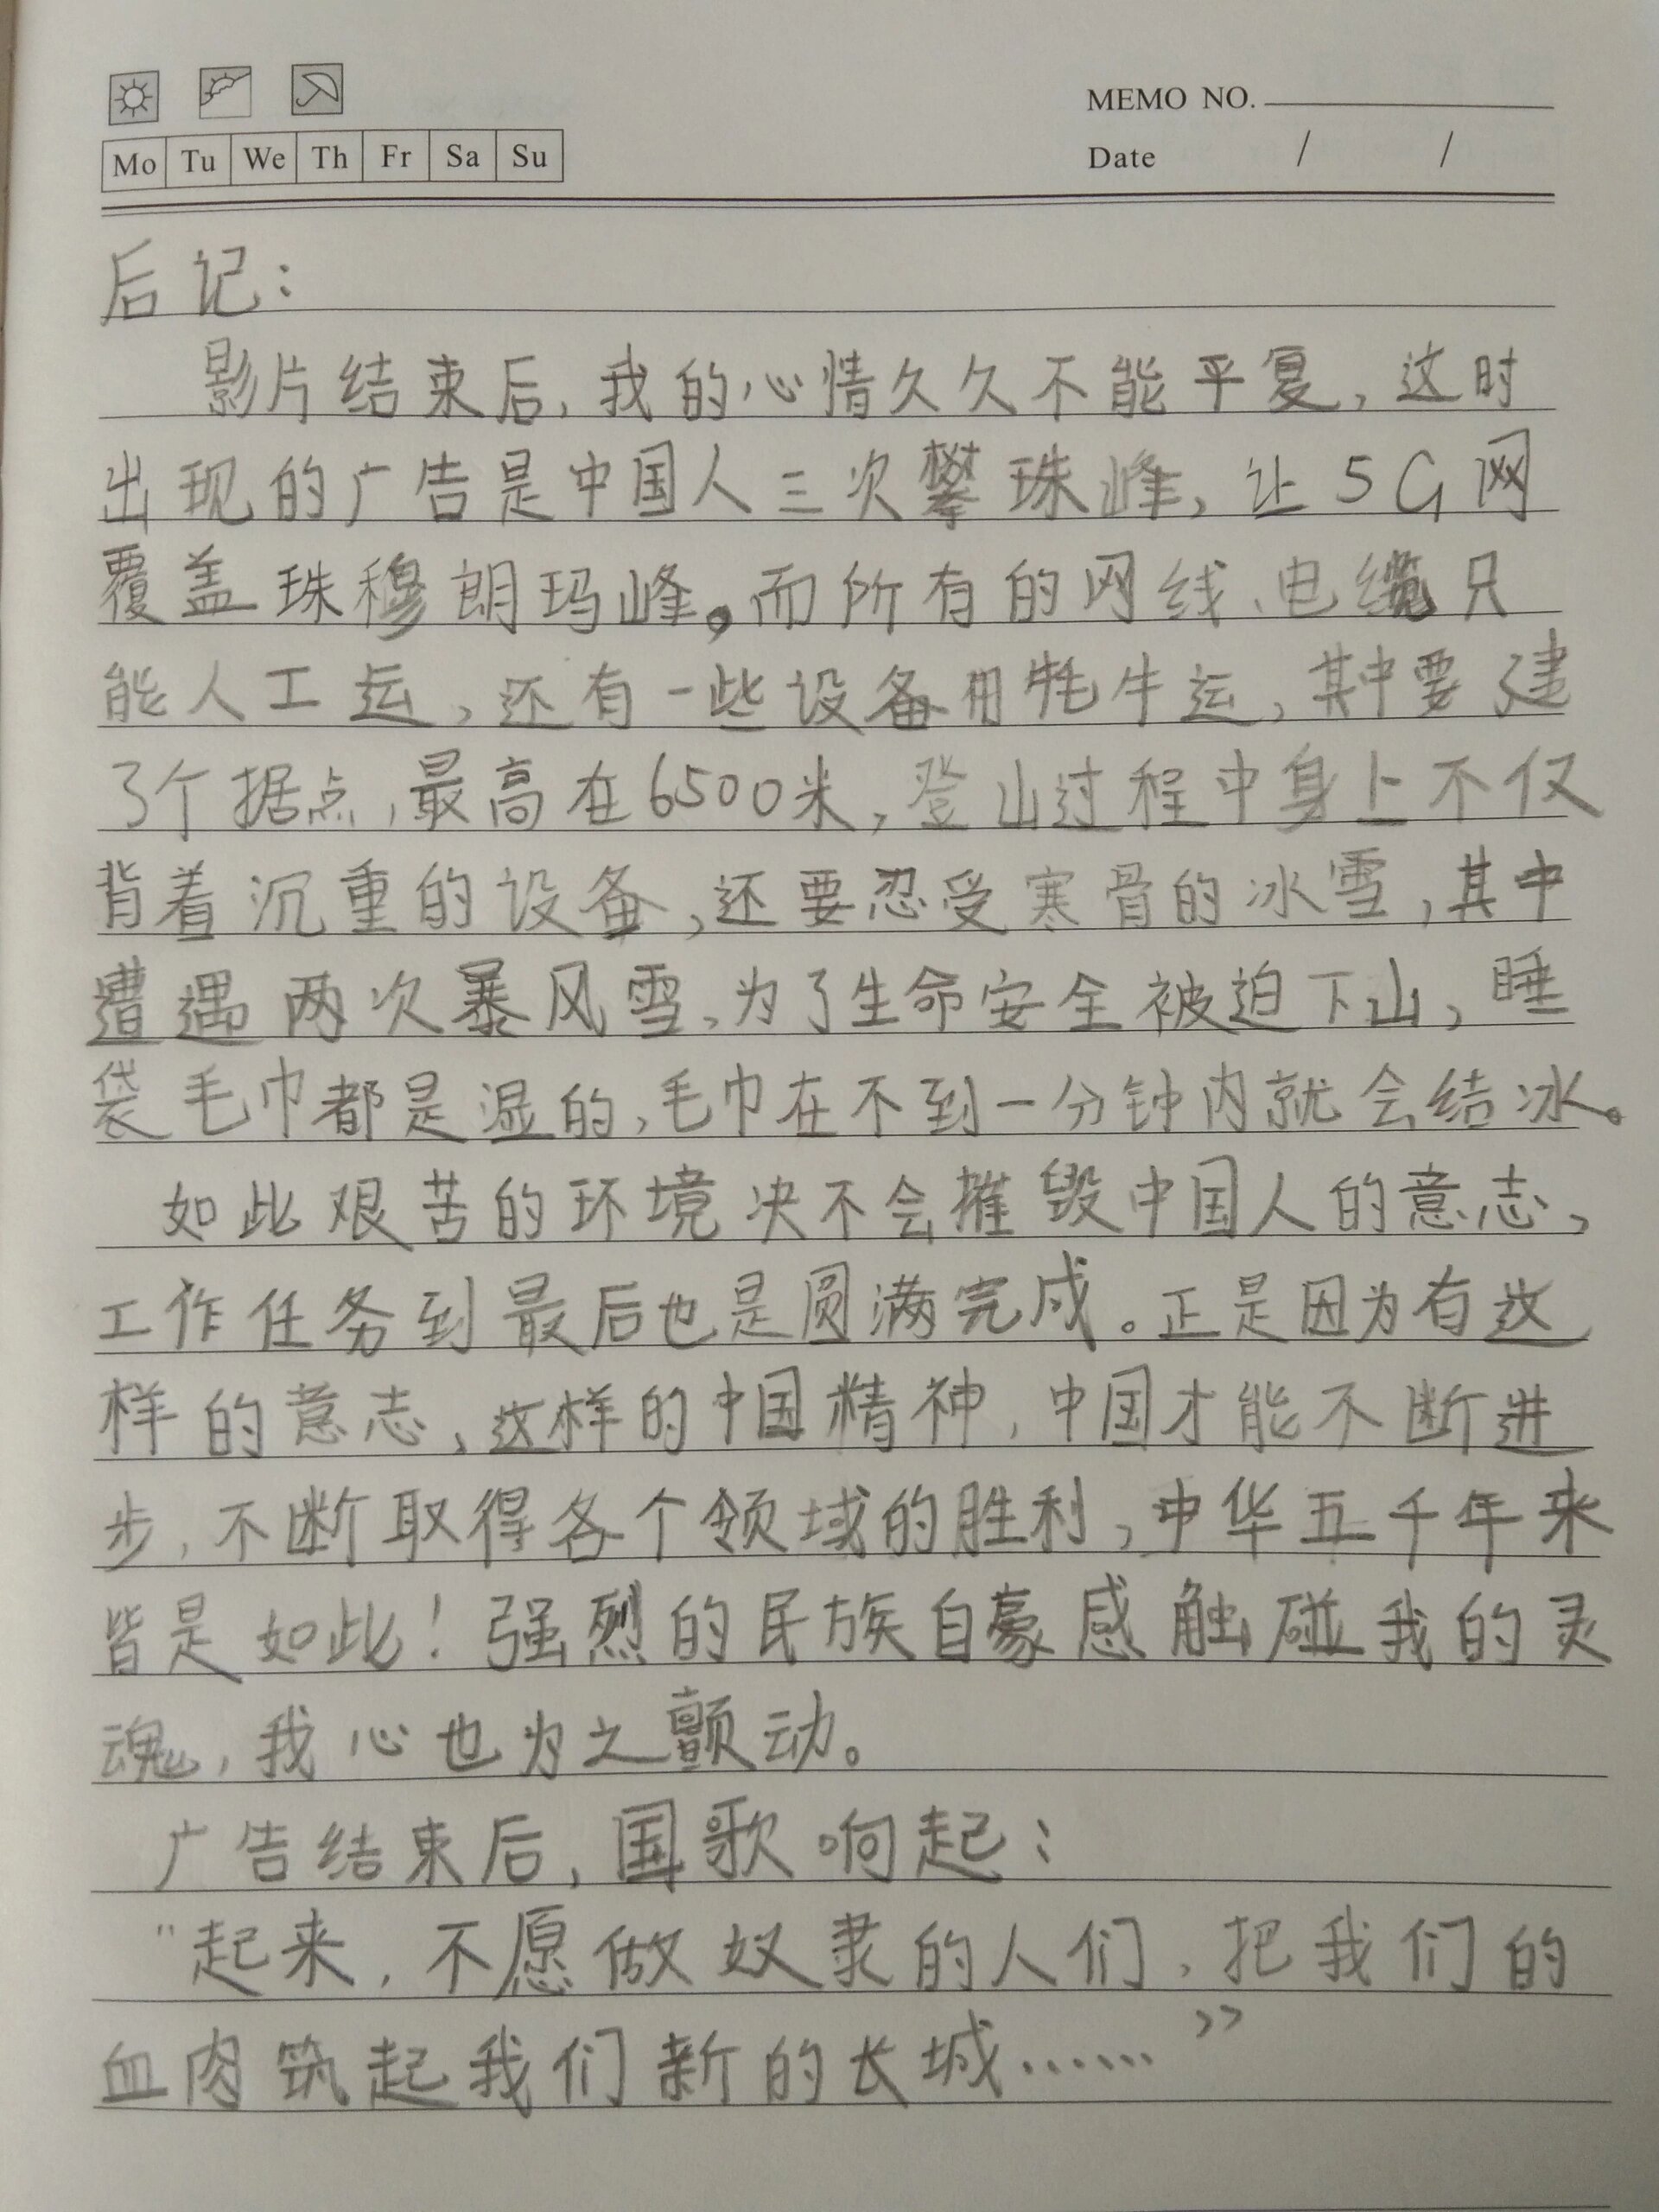 MEMO NO.
Mo Tu We Th Fr Sa Su
Date / /
后记：
影片结束后，我的心情久久不能平复，这时
出现的广告是中国人三次攀珠峰，让5G网
覆盖珠穆朗玛峰。而所有的网线、电缆只
能人工运，还有一些设备用牦牛运，其中要建
3个据点，最高在6500米，登山过程中身上不仅
背着沉重的设备，还要忍受寒骨的冰雪，其中
遭遇两次暴风雪，为了生命安全被迫下山，睡
袋毛巾都是湿的，毛巾在不到一分钟内就会结冰。
如此艰苦的环境决不会摧毁中国人的意志，
工作任务到最后也是圆满完成。正是因为有这
样的意志，这样的中国精神，中国才能不断进
步，不断取得各个领域的胜利，中华五千年来
皆是如此！强烈的民族自豪感触碰我的灵
魂，我心也为之颤动。
广告结束后，国歌响起：
“起来，不愿做奴隶的人们，把我们的
血肉筑起我们新的长城……”